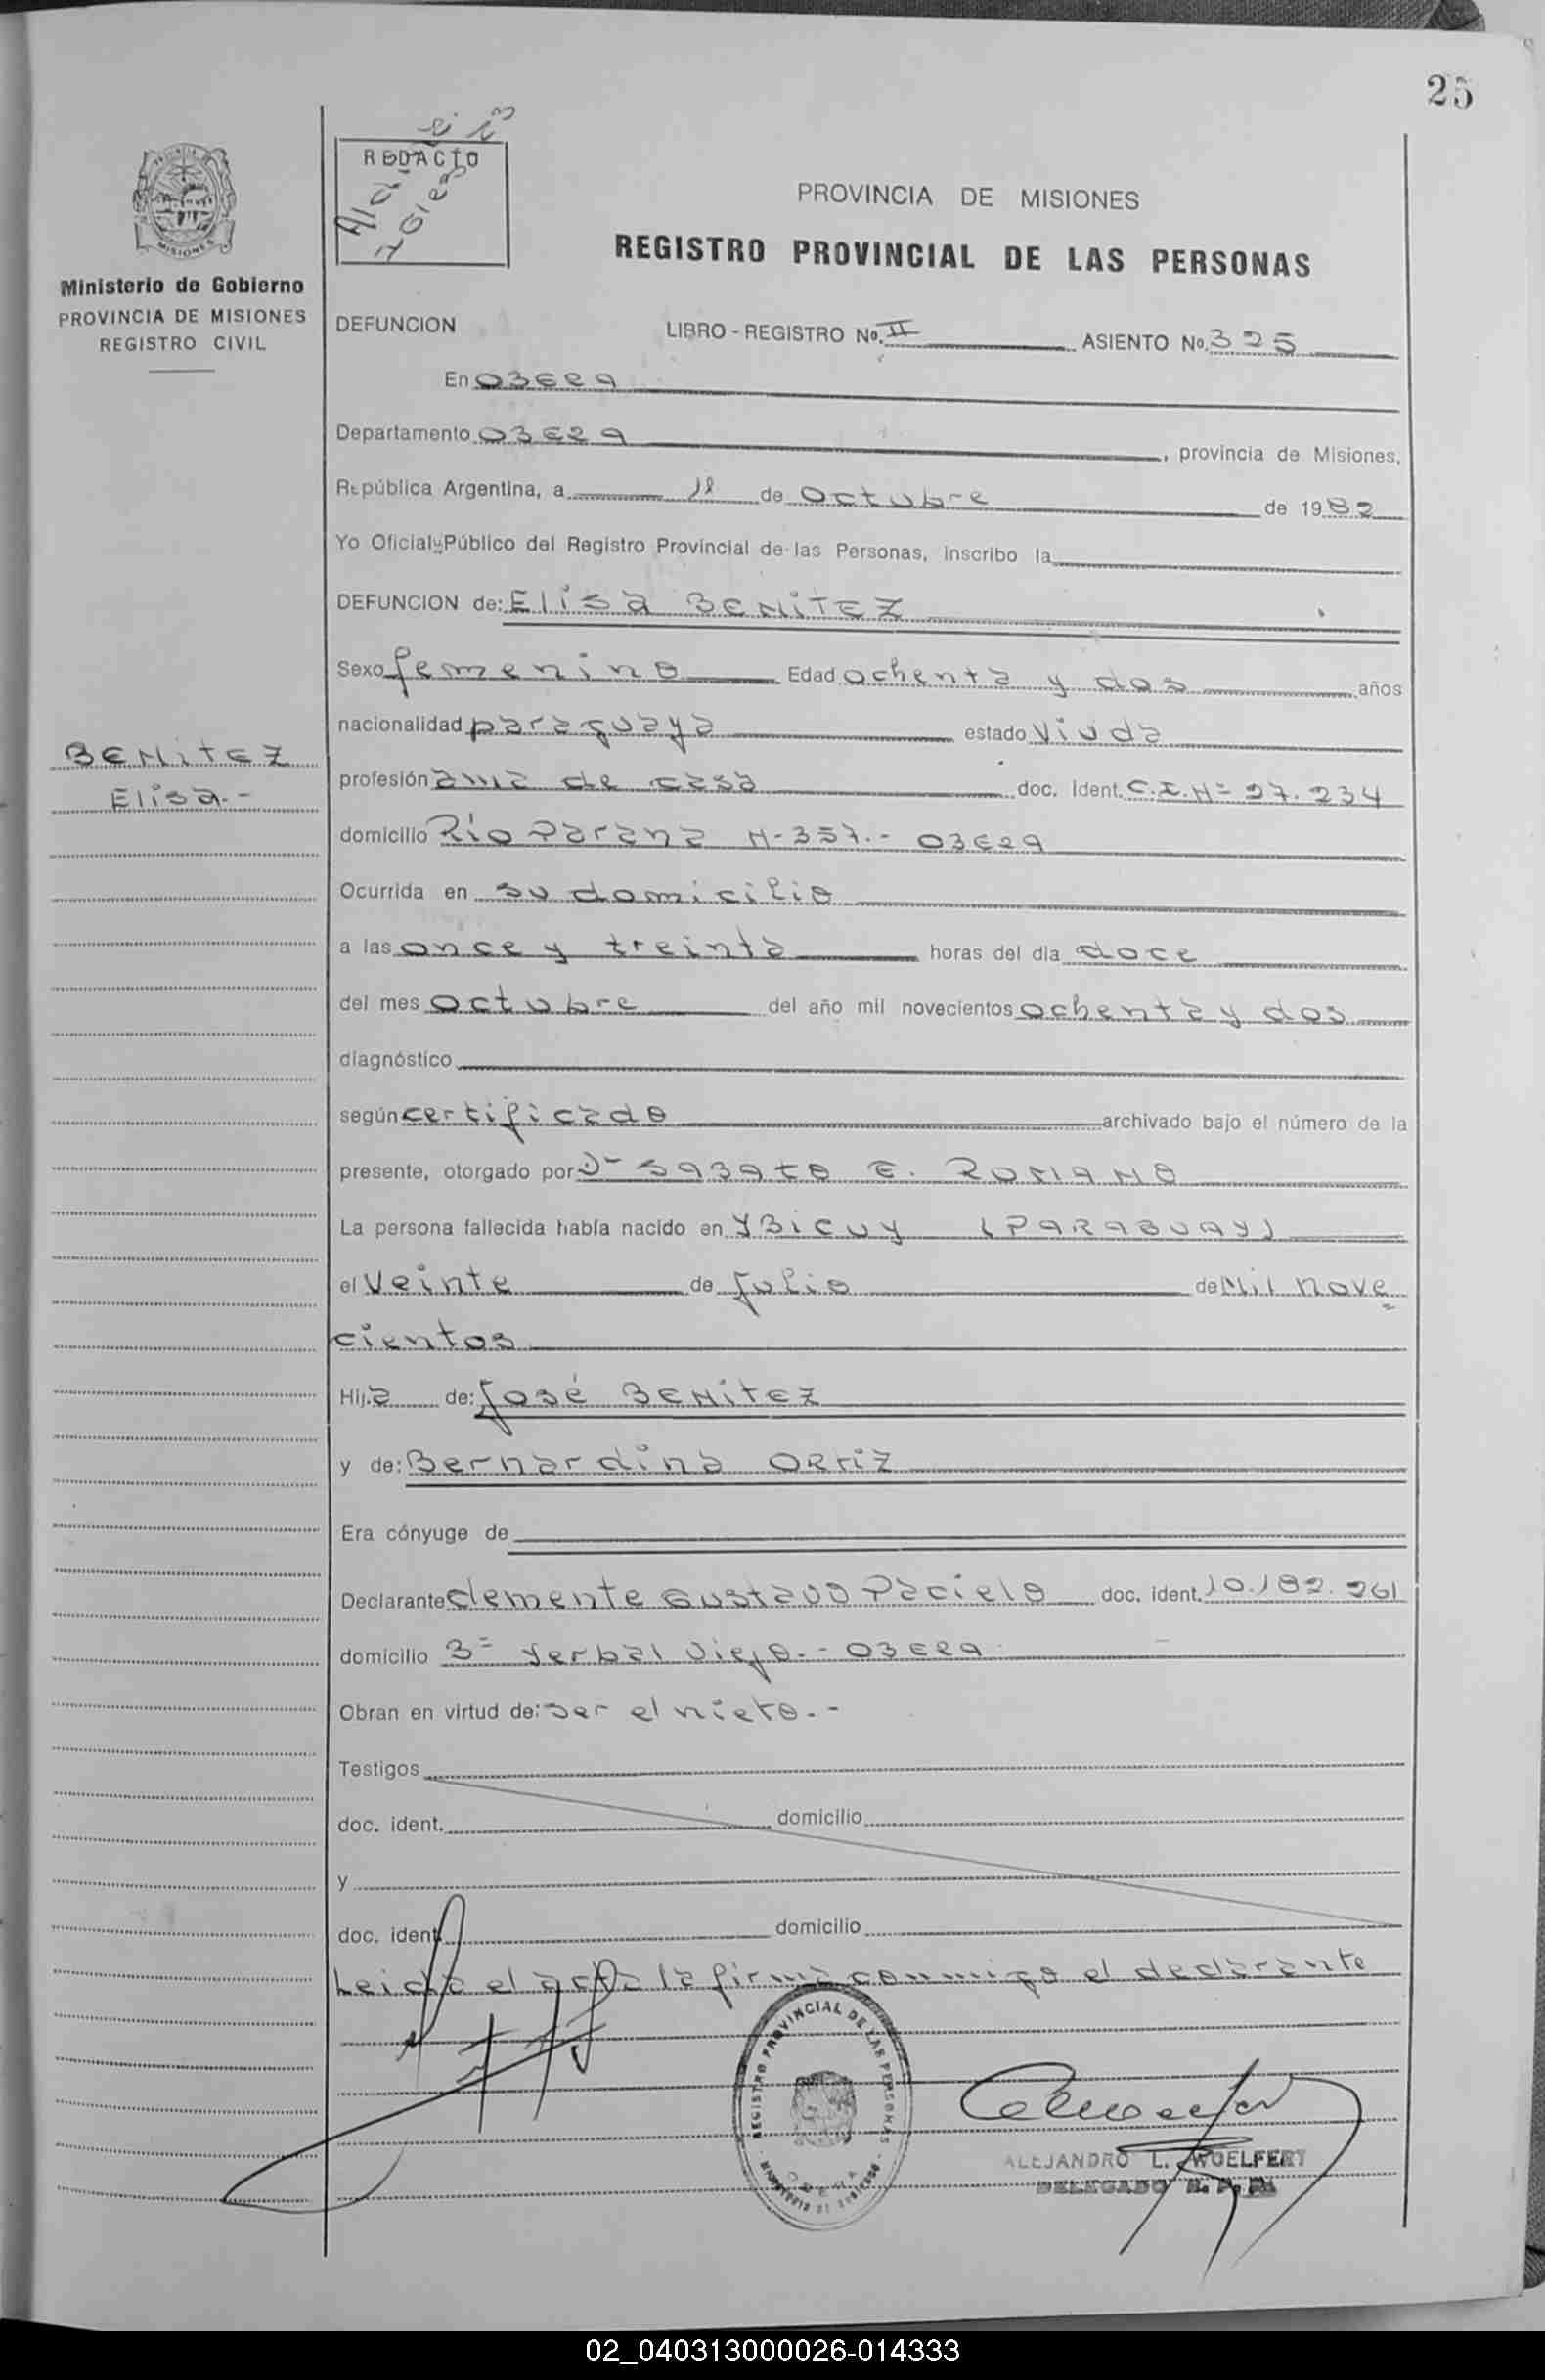 25
REDACTO
PROVINCIA DE MISIONES
REGISTRO PROVINCIAL DE LAS PERSONAS
MISIONES
Ministerio de Gobierno
PROVINCIA DE MISIONES
REGISTRO CIVIL
DEFUNCION LIBRO - REGISTRO No. II ASIENTO No. 325
En OBERA
Departamento OBERA, provincia de Misiones,
República Argentina, a de Octubre de 1982
Yo Oficial Público del Registro Provincial de las Personas, inscribo la
DEFUNCION de: Elisa BENITEZ
Sexo femenino Edad ochenta y dos años
nacionalidad paraguaya estado Viuda
BENITEZ
Elisa.-
profesión ama de casa doc. ident. C.I. Nº 27.234
domicilio Río Paraná N-357.- OBERA
Ocurrida en su domicilio
a las once y treinta horas del día doce
del mes octubre del año mil novecientos ochenta y dos
diagnóstico
según certificado archivado bajo el número de la
presente, otorgado por Dr SABATO E. ROMANO
La persona fallecida había nacido en YBICUY (PARAGUAY)
el Veinte de Julio de Mil nove
cientos
Hija de: José BENITEZ
y de: Bernardina ORTIZ
Era cónyuge de
Declarante Clemente Gustavo Pacielo doc. ident. 10.182.261
domicilio 3= Yerbal Viejo.- OBERA
Obran en virtud de: ser el nieto.-
Testigos
doc. ident. domicilio
y
doc. ident. domicilio
Leida el acta la firma conmigo el declarante
REGISTRO PROVINCIAL DE LAS PERSONAS
MINISTERIO DE GOBIERNO
OBERA
ALEJANDRO L. WOELFERT
DELEGADO R. P. P.
02_040313000026-014333